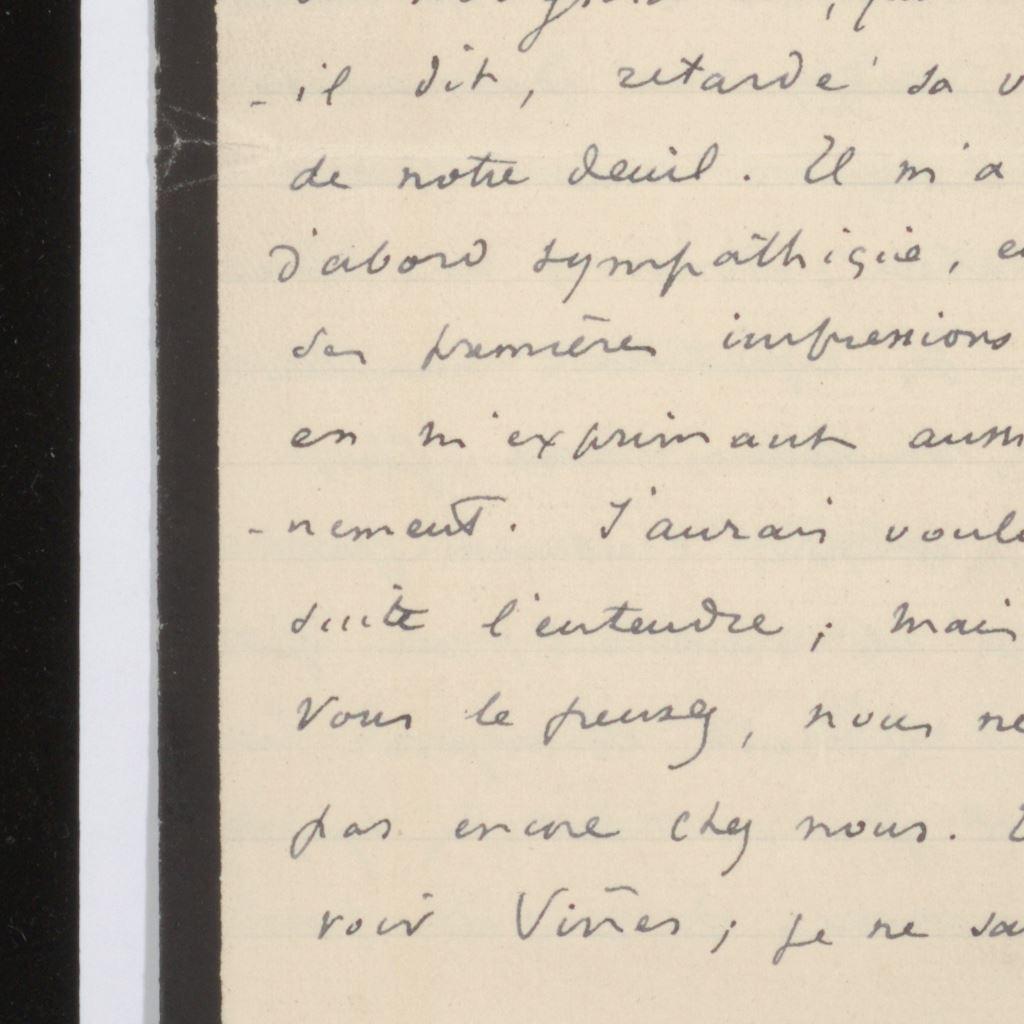 -il dit, retardé sa v
de notre deuil. Il m'a
d'abord sympathisié, e
des premières impressions
en m'exprimant aussi
-nement. J'aurais voulu
suite l'entendre ; mais
Vous le pensez, nous ne
pas encore chez nous.
voir Viñes ; je ne sa